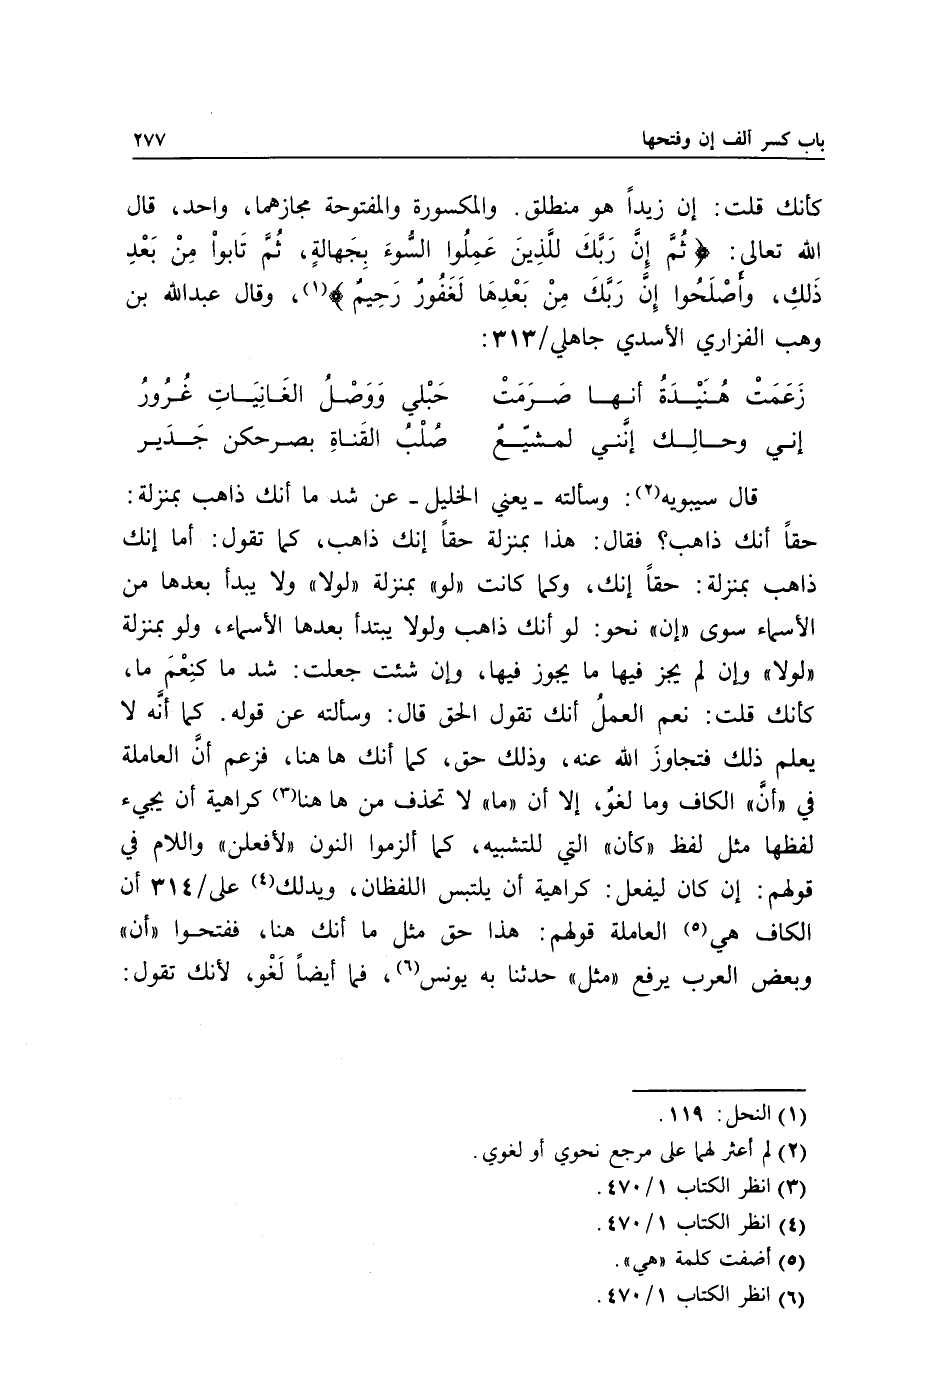 باب كسر ألف إن وفتحها ٢٧٧
كأنك قلت: إن زيداً هو منطلق. والمكسورة والمفتوحة مجازهما، واحد، قال
الله تعالى: ﴿ ثُمَّ إِنَّ رَبَّكَ للَّذِينَ عَمِلُوا السُّوءَ بِجَهالةٍ، ثُمَّ تَابواْ مِنْ بَعْدِ
ذَلكِ، وأَصْلَحُوا إنَّ رَبَّكَ مِنْ بَعْدِهَا لَغَفُورٌ رَحِيمٌ ﴾(١)، وقال عبدالله بن
وهب الفزاري الأسدي جاهلي/٣١٣:
زَعَمَتْ هُنَيْدَةُ أنها صَرَمَتْ حَبْلي وَوَصْلُ الغَانِيَاتِ غُرُورُ
إني وحالِك إنَّني لمشيّعٌ صُلْبُ القَناةِ بصرحكن جَدَير
قال سيبويه(٢): وسألته ـ يعني الخليل ـ عن شد ما أنك ذاهب بمنزلة:
حقاً أنك ذاهب؟ فقال: هذا بمنزلة حقاً إنك ذاهب، كما تقول: أما إنك
ذاهب بمنزلة: حقاً إنك، وكما كانت «لو» بمنزلة «لولا» ولا يبدأ بعدها من
الأسماء سوى «إن» نحو: لو أنك ذاهب ولولا يبتدأ بعدها الأسماء، ولو بمنزلة
«لولا» وإن لم يجز فيها ما يجوز فيها، وإن شئت جعلت: شد ما كنِعْمَ ما،
كأنك قلت: نعم العملُ أنك تقول الحق قال: وسألته عن قوله. كما أنَّه لا
يعلم ذلك فتجاوزَ الله عنه، وذلك حق، كما أنك ها هنا، فزعم أنَّ العاملة
في «أنَّ» الكاف وما لغوٌ، إلا أن «ما» لا تحذف من ها هنا(٣) كراهية أن يجيء
لفظها مثل لفظ «كأن» التي للتشبيه، كما ألزموا النون «لأفعلن» واللام في
قولهم: إن كان ليفعل: كراهية أن يلتبس اللفظان، ويدلك(٤) على/٣١٤ أن
الكاف هي(٥) العاملة قولهم: هذا حق مثل ما أنك هنا، ففتحوا «أن»
وبعض العرب يرفع «مثل» حدثنا به يونس(٦)، فما أيضاً لَغْو، لأنك تقول:
(١) النحل: ١١٩.
(٢) لم أعثر لهما على مرجع نحوي أو لغوي.
(٣) انظر الكتاب ١/ ٤٧٠.
(٤) انظر الكتاب ١/ ٤٧٠.
(٥) أضفت كلمة «هي».
(٦) انظر الكتاب ١/ ٤٧٠.